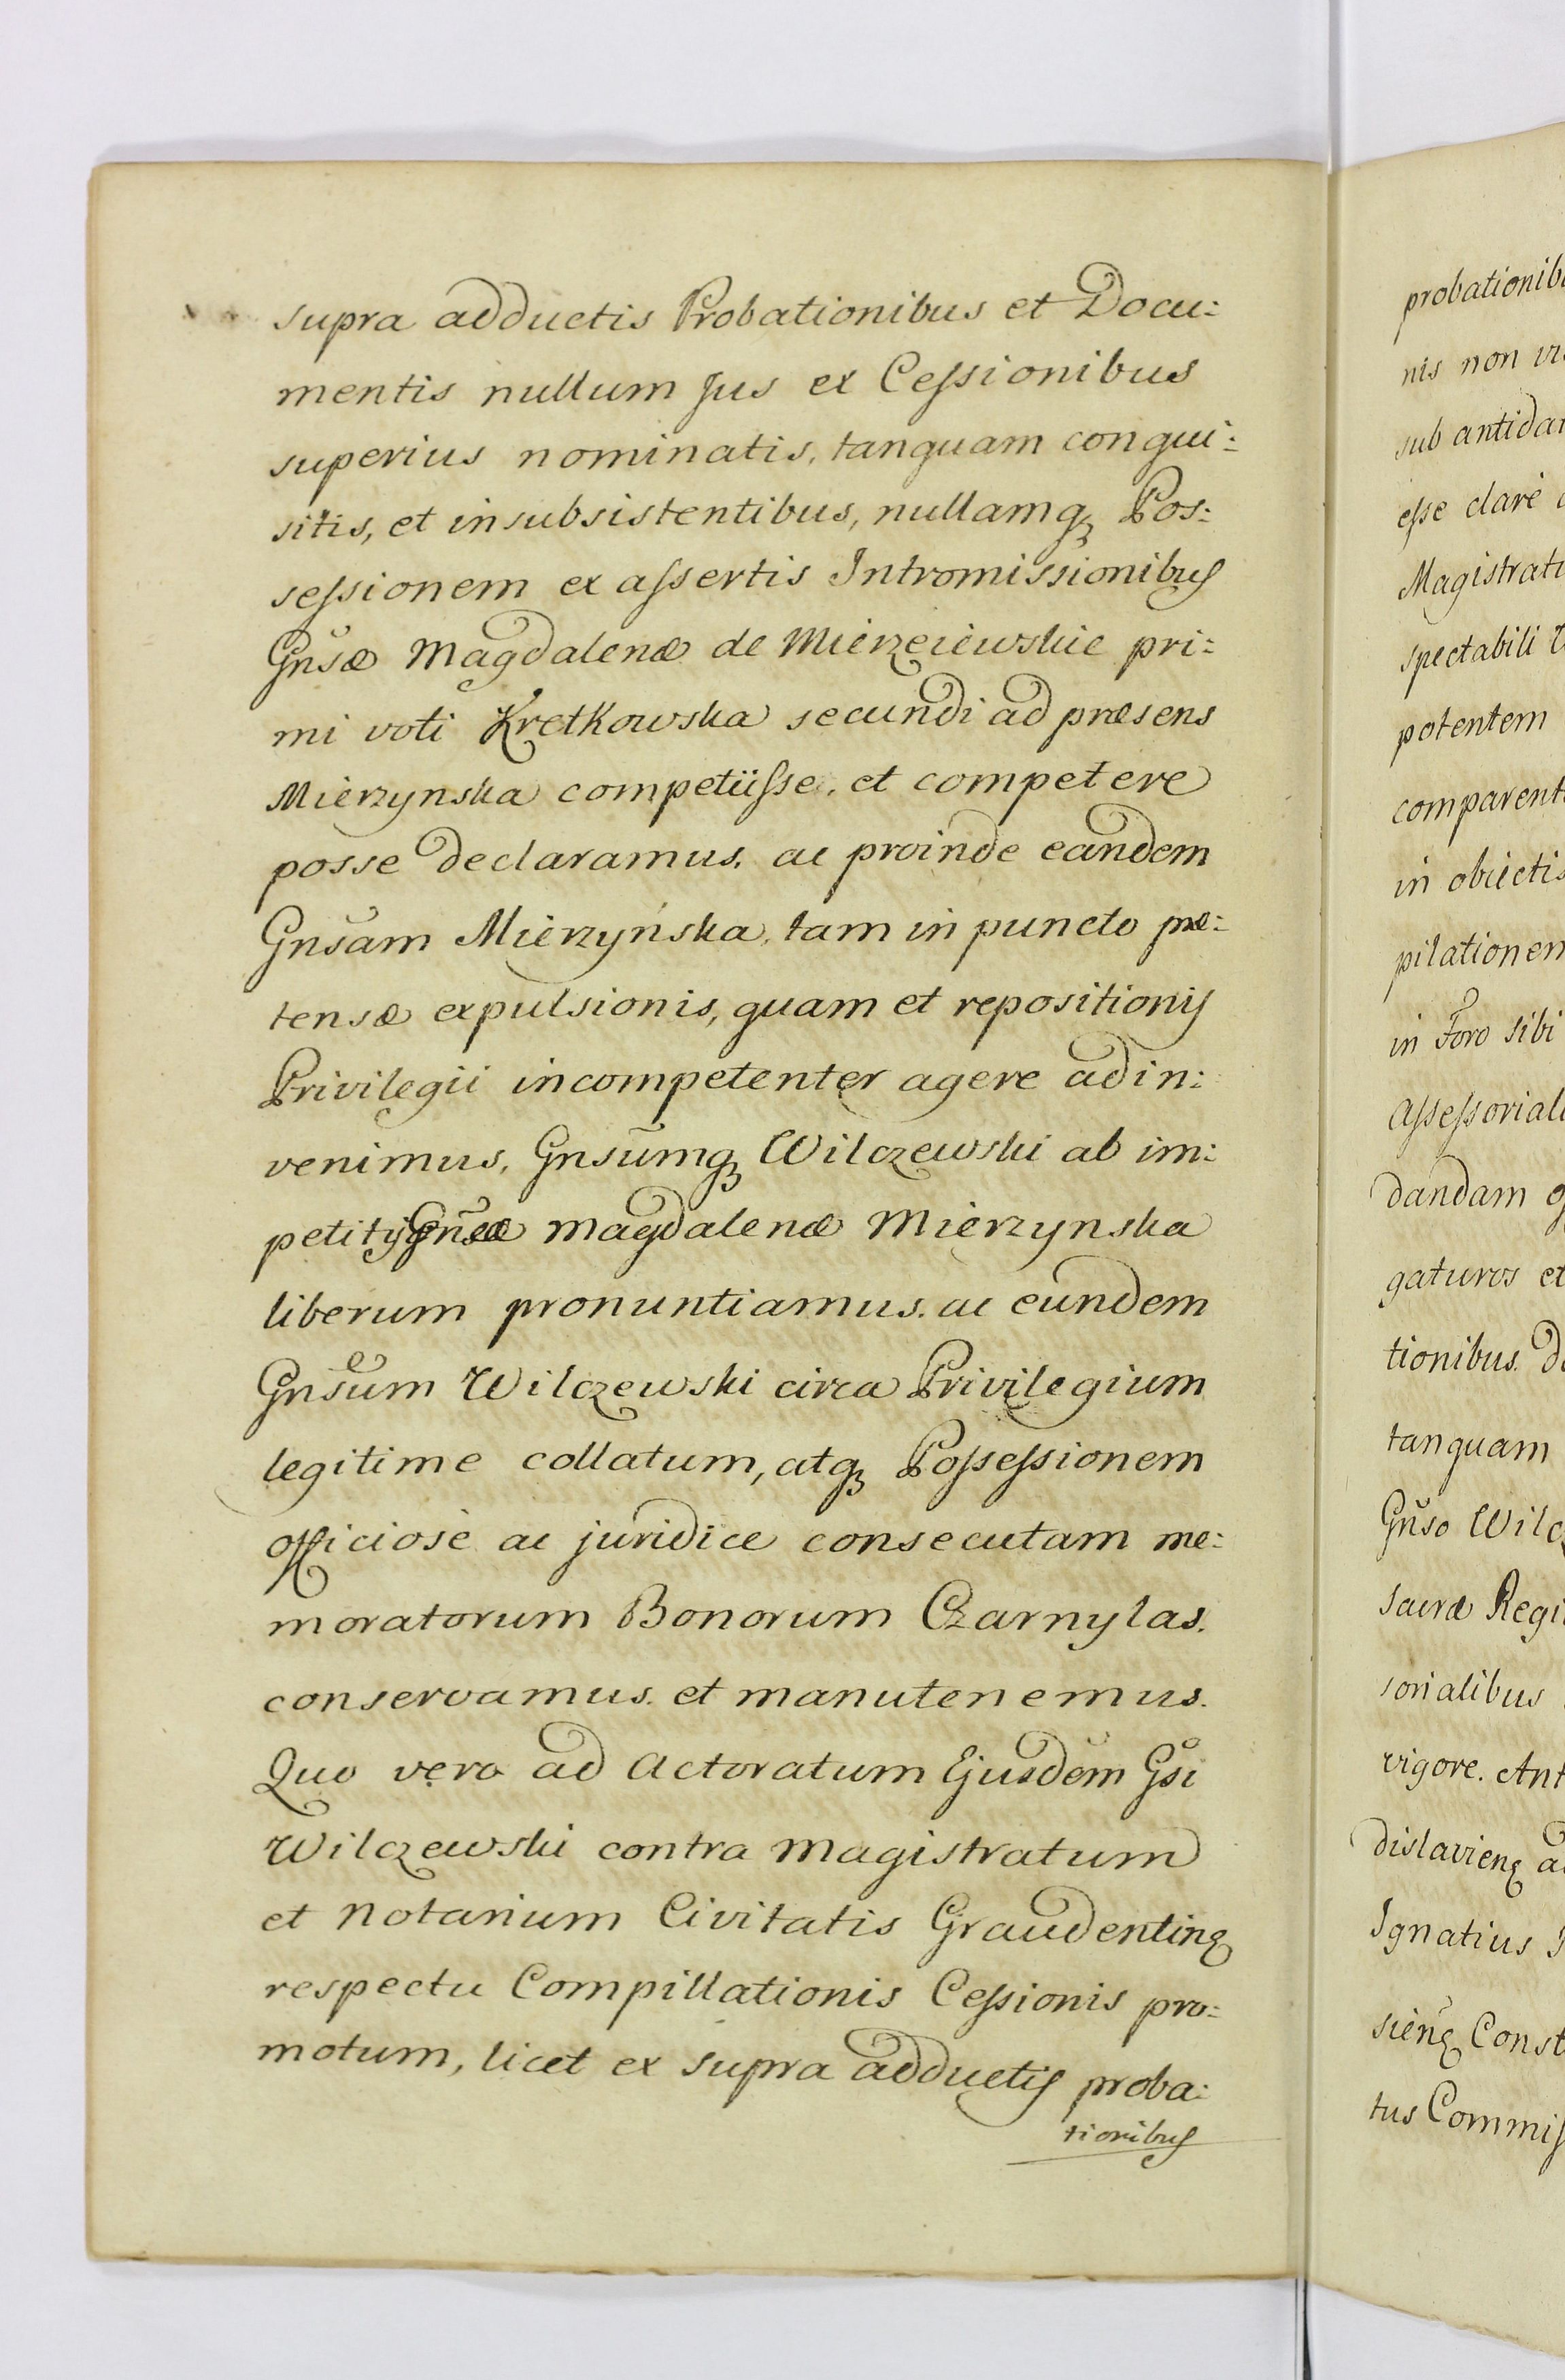 supra adductis Probationibus et Docu:
mentis nullum Jus ex Cessionibus
superius nominatis, tanquam conqui:
sitis, et insubsistentibus, nullamq̢ Pos:
sessionem ex assertis Intromissionibus
Gnsæ Magdalenæ de Mierzeiewskie pri:
mi voti Kretkowska secundi ad præsens
Mierzynska competiisse, et competere
posse declaramus, ac proinde eandem
Gnsam Mierzyńska, tam in puncto præ:
tensæ expulsionis, quam et repositionis
Privilegii incompetenter agere adin:
venimus, Gnsumq̢ Wilczewski ab im:
petitys Gnsæ Magdalenæ Mierzynska
liberum pronuntiamus, ac eundem
Gnsum Wilczewski circa Privilegium
legitime collatum, atq̢ Possessionem
officiosè ac juridice consecutam me:
moratorum Bonorum Czarnylas.
conservamus, et manutenemus.
Quo vero ad Actoratum Ejusdem Gsi
Wilczewski contra Magistratum
et Notarium Civitatis Graudentinę
respectu Compillationis Cessionis pro:
motum, licet ex supra adductis proba:
tionibus
probationib
nis non
sub antida
esse clarè
Magistrat
spectabili
potentem
comparent
in obiectis
pilationem
in Foro sibi
Assessoriali
dandam
gaturos et
tionibus
tanquam
Gnso Wilcz
Sacræ Regi
sorialibus
vigore. Ant
dislavienę
Ignatius
sienę Const
tus Commis